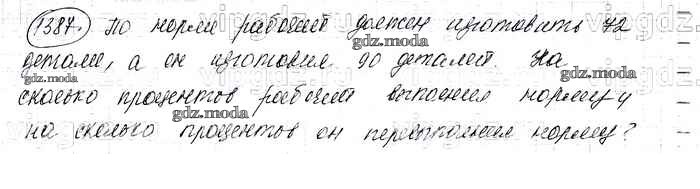 1387. По норме рабочий должен изготовить 72
детали, а он изготовил 90 деталей. На
сколько процентов рабочий выполнил норму и
на сколько процентов он перевыполнил норму?
gdz.moda
gdz.moda
gdz.moda
gdz.moda
gdz.moda
gdz.moda